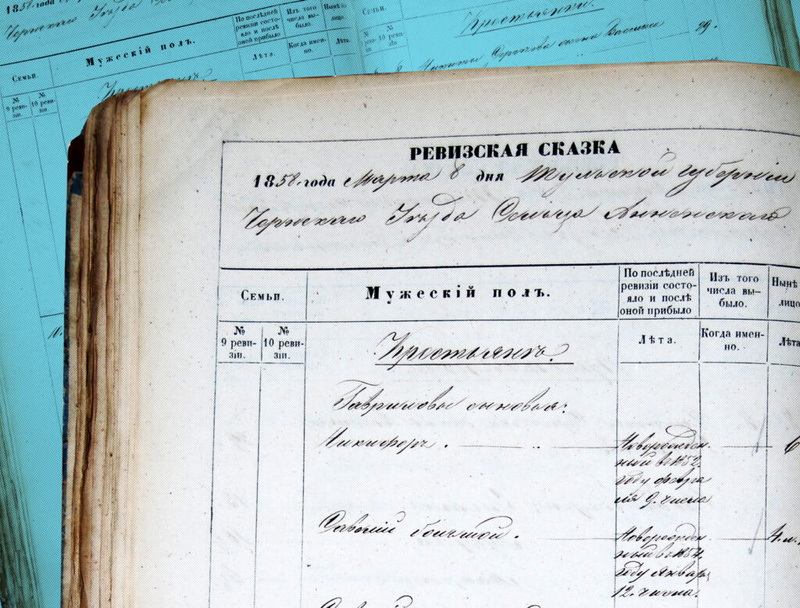 1858 года
Чернского Уѣзда
Семьи.
Мужескій полъ.
По послѣдней
ревизіи состо-
яло и послѣ
оной прибыло
Изъ того
числа вы-
было.
Лѣта.
Когда имен-
но.
Лѣта.
№
9 реви-
зіи.
№
10 реви-
зіи.
Крестьянки.
29.
РЕВИЗСКАЯ СКАЗКА
1858. года Марта 8 дня Тульской губерніи
Чернскаго Уѣзда Сельца Анненскаго
Семьи.
Мужескій полъ.
По послѣдней
ревизіи состо-
яло и послѣ
оной прибыло
Изъ того
числа вы-
было.
Нынѣ
лицо
№
9 реви-
зіи.
№
10 реви-
зіи.
Лѣта.
Когда имен-
но.
Лѣта
Крестьянъ.
Гавриловы сыновья:
Никифоръ.
Новорожден
ный въ 1852
году февра
ля 9. числа
6
Савелій большой.
Новорожден
ный въ 1854
году Январ
12. числа.
4.